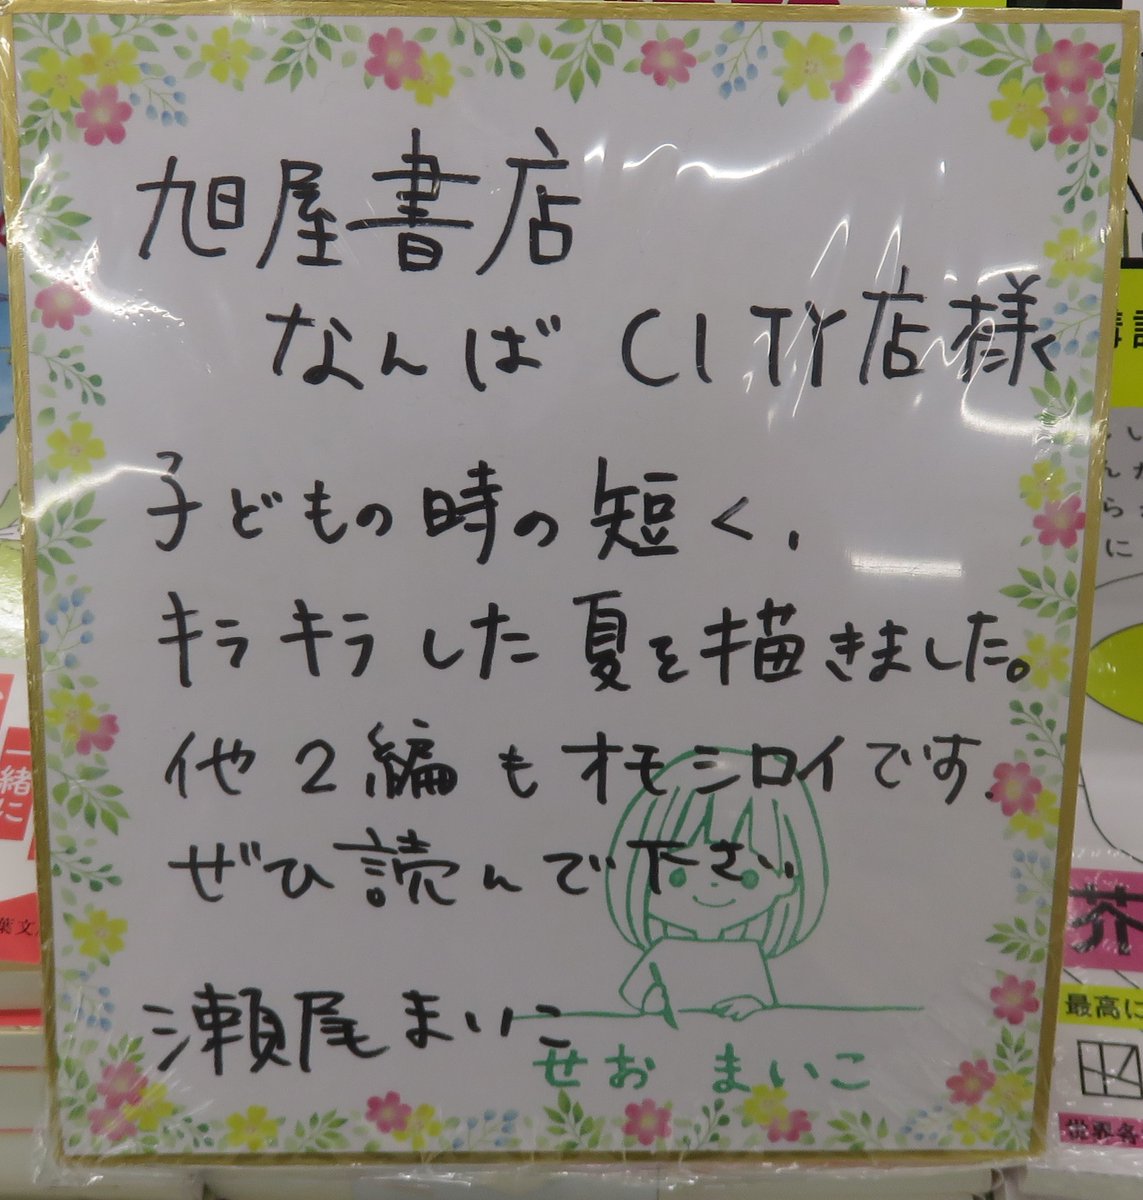 旭屋書店
なんばCITY店様
子どもの時の短く、
キラキラした夏を描きました。
他2編もオモシロイです。
ぜひ読んで下さい
瀬尾まいこ
せお まいこ
一緒に
葉文
芥
最高に
世界各